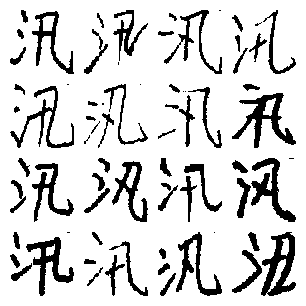 汛汛汛汛
汛汛汛汛
汛汛汛汛
汛汛汛